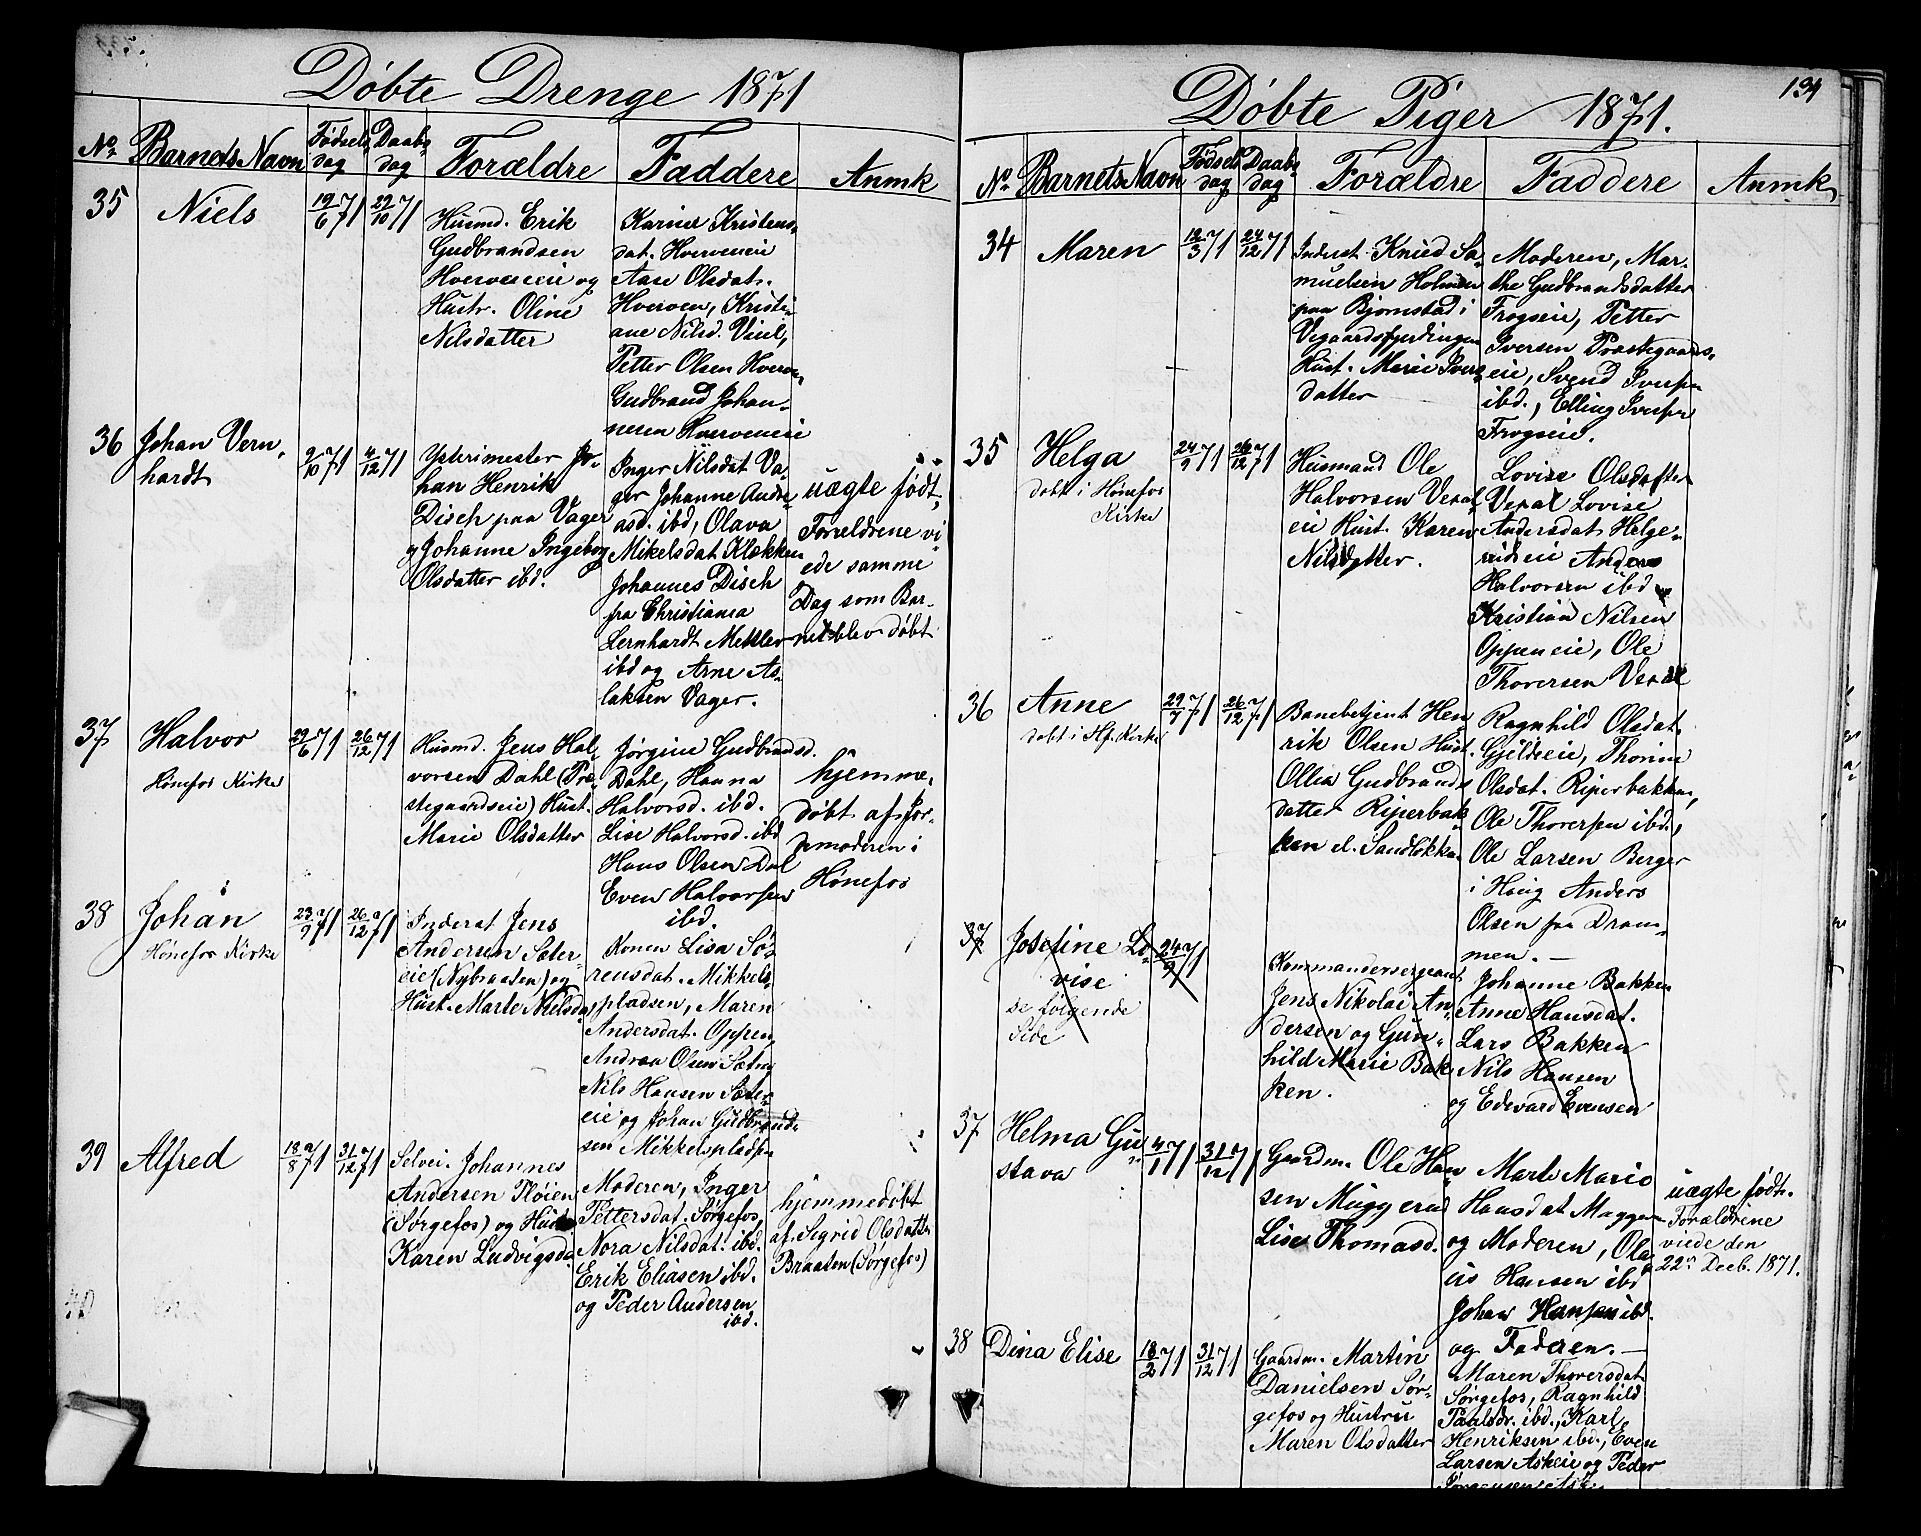 Døbte Drenge 1871
No. Barnets Navn Fødselsdag Daabsdag Forældre Faddere Anmk
35 Niels 19/6 71 29/10 71
Husmd. Erik
Gudbrandsen
Hverveneie og
Hustr. Oline
Nilsdatter
Karine Kristens-
dat. Hverveneie
Aase Olsdat.
Hverven, Kristi-
ane Nilsd. Viul,
Petter Olsen Hverve-
Gudbrand Johan-
nesen Hverveneie
36 Johan Vern-
hardt
2/10 71 4/12 71
Ysterimester Jo-
han Henrik
Disch paa Vager
og Johanne Ingeborg
Olsdatter ibd.
Inger Nilsdat Va-
ger Johanne Andre-
asd. ibd, Olava
Mikelsdat Klækken
Johannes Disch
fra Christiania
Lernhardt Mettler
ibd og Arne As-
laksen Vager.
uægte født,
Forældrene vi-
ede samme
Dag som Bar-
net blev døbt
37 Halvor
Hønefos Kirke
29/6 71 26/12 71
Husmd. Jens Hal-
vorsen Dahl (Præ-
stegaardseie) Hust.
Marie Olsdatter
Jørgine Gudbransd.
Dahl, Hanna
Halvorsd. ibd.
Lise Halvorsd. ibd
Hans Olsen Dal
Even Halvorsen
ibd.
hjemme-
døbt af Jor-
demoderen i
Hønefos
38 Johan
Hønefos Kirke
23/9 71 26/12 71
Inderst Jens
Andersen Sæter-
eie (Nybraaten) og
Hust. Marte Nielsda
Konen Lisa Sø-
rensdat. Mikkels-
pladsen, Maren
Andersdat. Oppen,
Andrea Olsen Sætra
Nils Hansen Sæter-
eie og Johan Gudbrand-
sen Mikkelspladsn
39 Alfred
18/8 71 31/12 71
Selvei. Johannes
Andersen Fløien
(Sørgefos) og Hust
Karen Ludvigsda
Moderen, Inger
Pettersdat. Sørgefos
Nora Nilsdat. ibd.
Erik Eliasen ibd.
og Peder Andersen
ibd.
hjemmedøbt
af Sigrid Olsdatter
Braaten (Sørgefos)
40
Døbte Piger 1871.
134
No. Barnets Navn Fødselsdag Daabsdag Forældre Faddere Anmk
34 Maren 12/3 71 24/12 71
Inderst Knud Sa-
muelsen Holmen
paa Bjørnstad i
Vegaardsfjerdingen
Hust. Marie Ivers-
datter
Moderen, Mar-
the Gudbrandsdatter
Frogseie, Petter
Iversen Præstegaards-
eie, Svend Iversen
ibd., Elling Iversen
Frogseie.
35 Helga
døbt i Hønefos
Kirke
24/9 71 26/12 71
Husmand Ole
Halvorsen Veral-
eie Hust. Karen
Nilsdatter.
Lovise Olsdatter
Veral Lovise
Andersdat. Helge-
rudeie Anders
Halvorsen ibd
Kristian Nilsen
Oppeneie, Ole
Thoversen Veral
36 Anne
døbt i Hf. Kirke
29/7 71 26/12 71
Banebetjent Hen-
rik Olsen Hust.
Ollea Gudbrands
datter Riperbak-
ken el. Sandløkka
Ragnhild Olsdat.
Gjeldseie, Thorine
Olsdat. Riperbakken,
Ole Thoversen ibd.,
Ole Larsen Berger
i Haug Anders
Olsen fra Dram-
men.
37 Josefine Lo-
vise
se følgende
Side
24/9 71
Kommandersergeant
Jens Nikolai An-
dersen og Gun-
hild Marie Bak-
ken.
Johanne Bakken
Anne Hansdat.
Lars Bakken
Nils Hansen
og Edevard Evensen
37 Helma Gu-
stava
4/1 71 31/12 71
Gaardm. Ole Han-
sen Muggerud
Lise Thomasd.
Marte Marie
Hansdat Mugge-
og Moderen, Ola-
us Hansen ibd
Johan Hansen ibd.
og Faderen.
uægte født.
Forældrene
viede den
22de Decb. 1871.
38 Dina Elise 18/2 71 31/12 71
Gaardm. Martin
Danielsen Sør-
gefos og Hustru
Maren Olsdatter
Maren Thoversdat
Sørgefos, Ragnhild
Paulsdr. ibd., Karl
Henriksen ibd., Even
Larsen Askeie og Peder